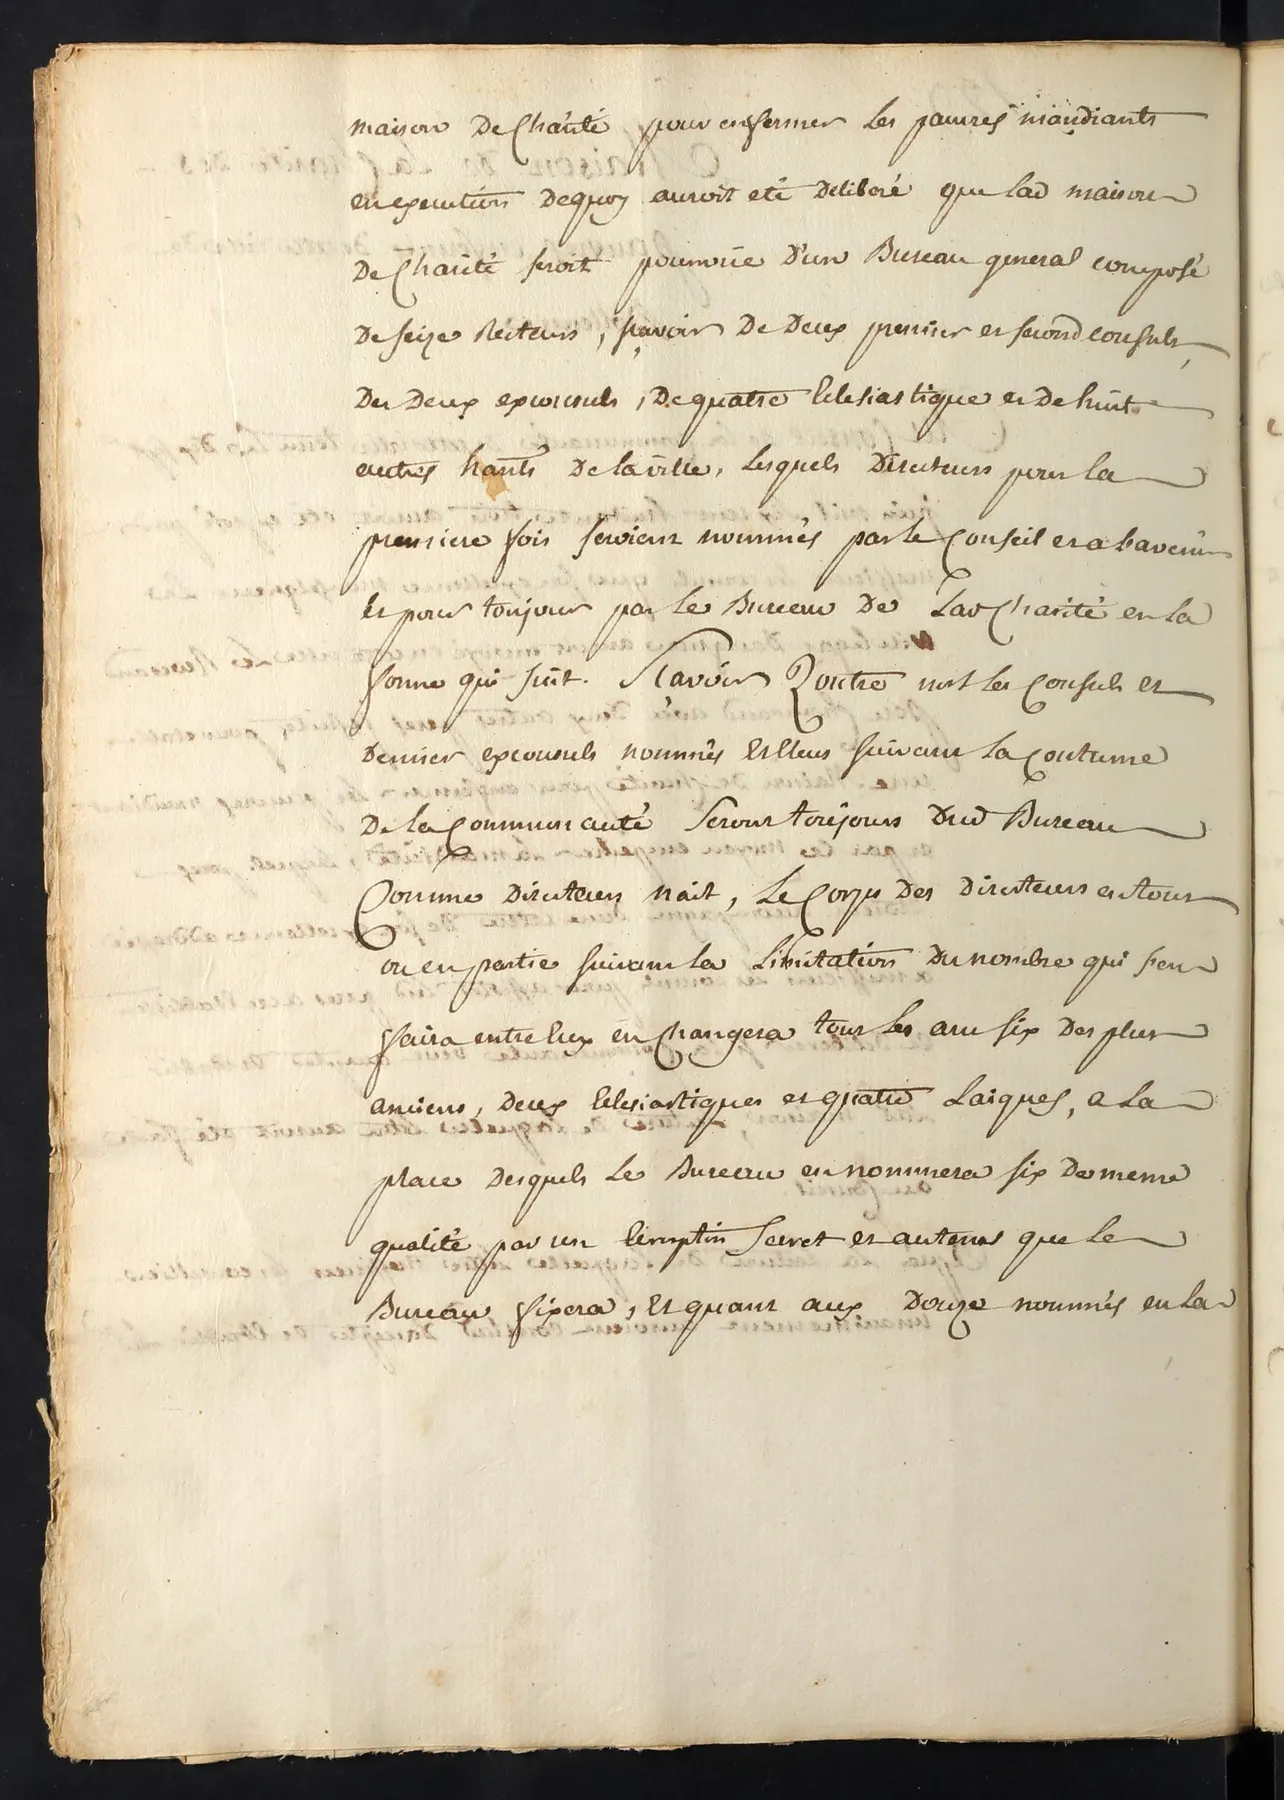 maison De Charité pour enfermer Les pauvres mandiants
en execution Dequoy auroit eté Deliberé que lad maison
De Charité seroit pourvuë D'un Bureau general composé
De seize Recteurs, sçavoir De Deux premier et second consuls,
Des Deux exconsuls, De quatre Eclesiastique et De huit
autres hants De la ville, Lesquels Directeurs pour la
premiere fois seroient nommés par le Conseil et a l'avenir
Et pour toujour par Le Bureau De Lad Charité en la
forme qui suit. Sçavoir Qoutre mrs Les Consuls et
Dernier exconsuls nommés Et Elleus suivant La Coutume
De la Communauté Seront toujours Dud Bureau
Comme Directeurs nait, Le Corps Des Directeurs en tour
ou en partie suivant La Limitation Du nombre qui s'en
faira entre Eux en Changera tous Les ans six Des plus
anciens, Deux Eclesiastiques et quatre Laiques, a La
place Desquels Le Bureau en nommera six De meme
qualité par un secret et autems que Le
Bureau fixera, Et quant aux Douze nommés en La